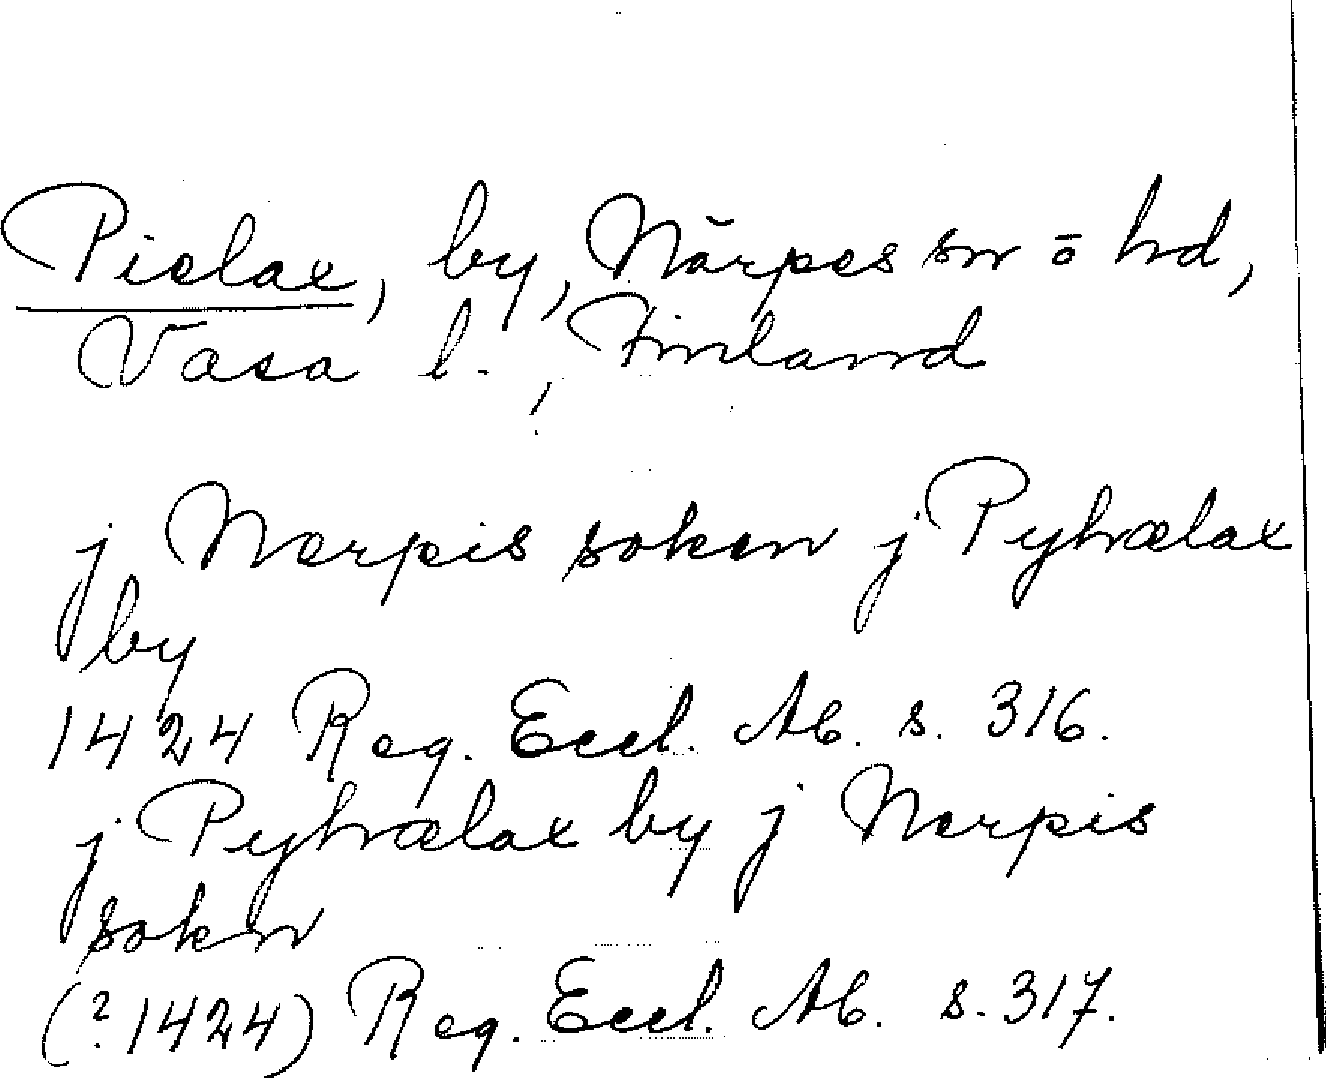 Pielax, by, Närpes sn o hd,
Vasa l., Finland
j Nerpis soken j Pyhælax
by
1424 Reg. Eccl. Ab. s. 316.
j Pyhælax by j Nerpis
sokn
(?1424) Reg. Eccl. Ab. s. 317.